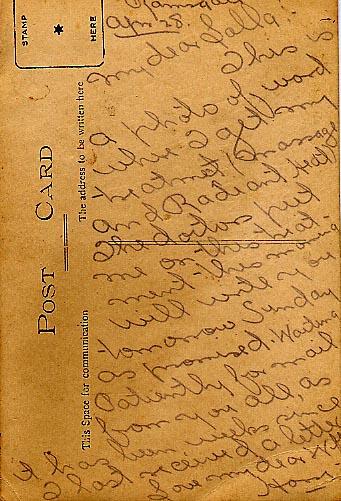 POST CARD
STAMP
HERE
The address to be written here
This Space for communication
Ramsgate
Apr. 28.
My dear Lalla:
This is
a photo of ward
where I get my
treatment (massage
and Radiant Heat)
The doctors put
me on this treat-
ment this morning
will write you
tomorrow Sunday
as promised. Waiting
Patiently for mail
from you all, as
it has been weeks since
I last received a letter
Love my dear